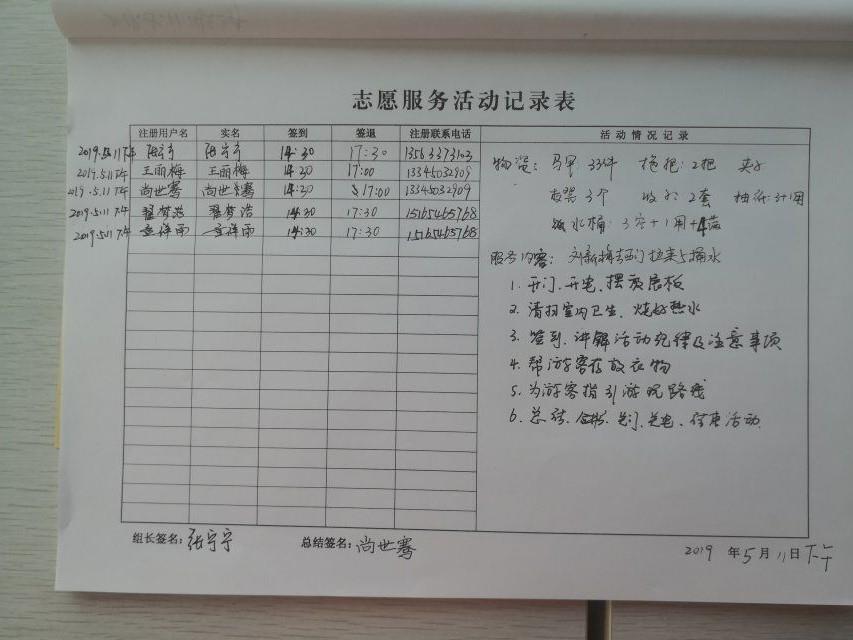 志愿服务活动记录表
注册用户名 实名 签到 签退 注册联系电话 活动情况记录
2019.5.11下午 14:30 17:30 13563373103
2019.5.11下午 王丽梅 王丽梅 14:30 17:00 13345032909
2019.5.11下午 尚世骞 尚世骞 14:30 17:00 13345032909
2019.5.11下午 翟梦浩 翟梦浩 14:30 17:30 15165465768
2019.5.11下午 14:30 17:30 15165465768
物资: 马甲 33件 拖把:2把 夹子
3个 2套 抽纸:
水桶: 3空+1用+4满
服务内容:
1. 开门、开电、摆放展板
2. 清扫室内卫生、烧好热水
3. 签到、讲解活动纪律及注意事项
4. 帮游客存放衣物
5. 为游客指引游玩路线
6. 总结、合影、关门、关电、结束活动.
组长签名: 张宁宁 总结签名: 尚世骞 2019 年 5 月 11 日 下午